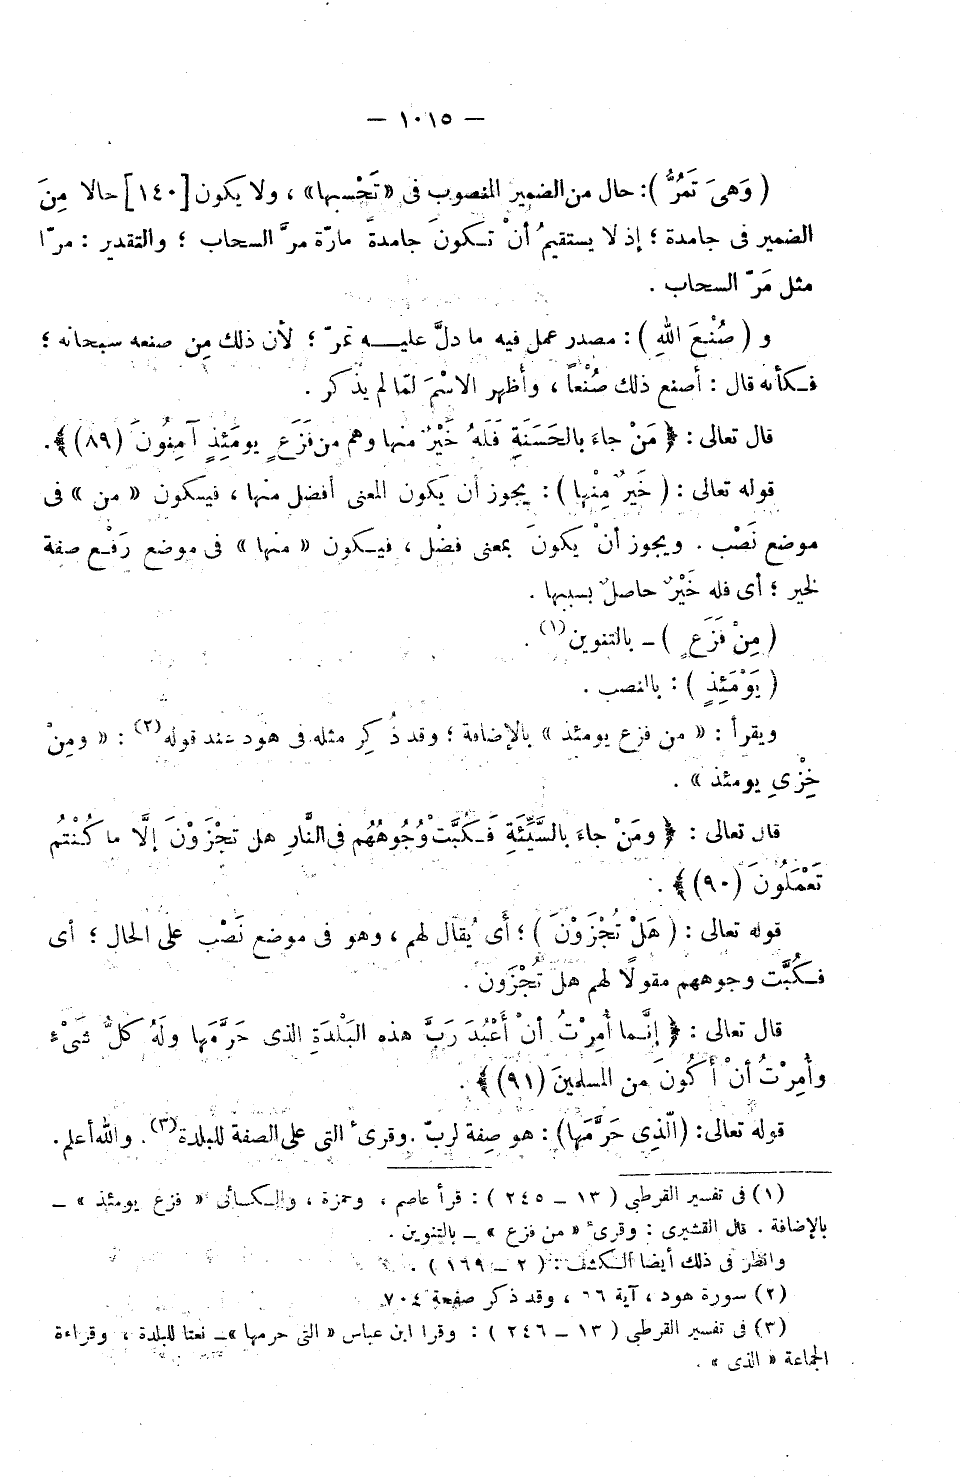 — ١٠١٥ —
( وَهِىَ تَمُرُّ ): حال من الضمير المنصوب فى «تَحْسبها» ، ولا يكون [١٤٠] حالا مِنَ
الضمير فى جامدة ؛ إذ لا يستقيمُ أنْ تكونَ جامدةً مارّة مرَّ السحاب ؛ والتقدير : مرّا
مثل مَرّ السحاب .
و ( صُنْعَ اللهِ ) : مصدر عمل فيه ما دلَّ عليـه تمرّ ؛ لأن ذلك مِن صنعه سبحانه ؛
فكأنه قال : أصنع ذلك صُنْعاً ، وأُظهر الاسْمَ لمّا لم يذكر .
قال تعالى : ﴿ مَنْ جاءَ بالحَسَنَةِ فَلَهُ خَيْرٌ منها وهم من فَزَعٍ يومَئِذٍ آمِنُونَ (٨٩)﴾ .
قوله تعالى : ( خَيرٌ مِنْها ) : يجوز أن يَكون المعنى أفضل منها ، فيسكون « من » فى
موضع نَصْب . ويجوز أنْ يكونَ بمعنى فضْل ، فيكون « منها » فى موضع رَفْع صفة
لخير ؛ أى فله خَيْرٌ حاصلٌ بسببها .
( مِنْ فَزَعٍ ) ــ بالتنوين (١) .
( يَوْمَئِذٍ ) : بالنصب .
ويقرأ : « من فزع يومئذ » بالإضافة ؛ وقد ذُكِر مثله فى هود عند قوله (٢) : « ومِنْ
خِزْىِ يومئذ » .
قال تعالى : ﴿ ومَنْ جاءَ بالسَّيِّئَةِ فَكُبَّتْ وُجُوهُهُم فى النَّارِ هل تجْزَوْنَ إلَّا ما كُنْتُم
تَعْمَلُونَ (٩٠)﴾ .
قوله تعالى : ( هَلْ تُجْزَوْنَ ) ؛ أَى يُقال لهم ، وهو فى موضع نَصْب على الحال ؛ أى
فكُبَّت وجوههم مقولًا لهم هل تُجْزَون .
قال تعالى : ﴿ إنَّما أُمِرْتُ أنْ أَعْبُدَ رَبَّ هذه البَلْدَةِ الذى حَرَّمَها ولَهُ كلُّ شَىْءٍ
وأُمِرْتُ أنْ أَكُونَ من المسلمينَ (٩١)﴾ .
قوله تعالى: (الّذِى حَرَّمَها) : هو صِفة لربّ . وقرىء التى على الصفة للبلدة (٣) . والله أعلم .
(١) فى تفسير القرطبى ( ١٣ ــ ٢٤٥ ) : قرأ عاصم ، وحمزة ، والكسائى « فزع يومئذ » ــ
بالإضافة . قال القشيرى : وقرىء « من فزع » ــ بالتنوين .
وانظر فى ذلك أيضا الكشف : ( ٢ ــ ١٦٩ ) .
(٢) سورة هود ، آية ٦٦ ، وقد ذكر صفحة ٧٠٤
(٣) فى تفسير القرطبى ( ١٣ ــ ٢٤٦ ) : وقرا ابن عباس « التى حرمها » ــ نعتا للبلدة ، وقراءة
الجماعة « الذى » .